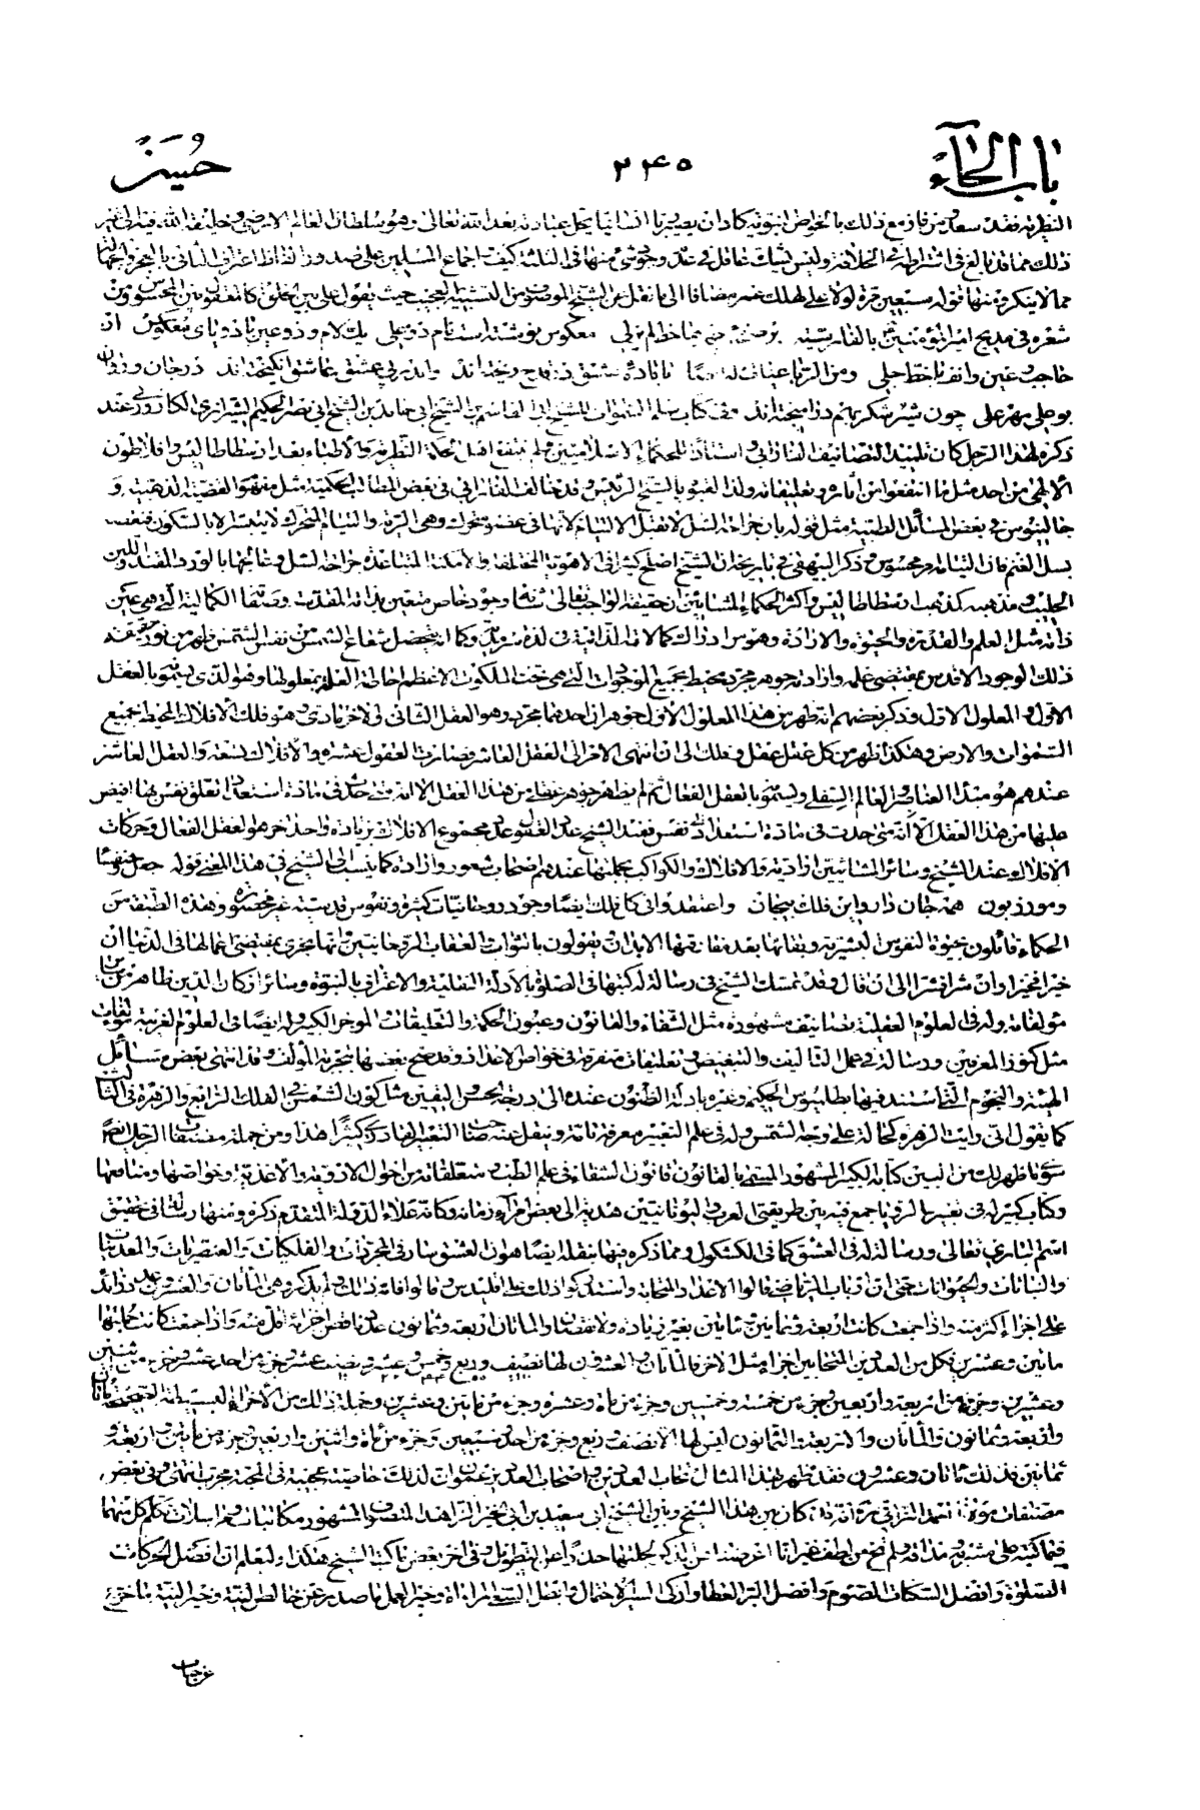 باب الحاء
٢٤٥
حسین
النظریة فقد سعد و من فاز مع ذلک بالخواص النبویة کاد ان یصیر ربا انسانیا یحل عبادته بعد الله تعالی و هو سلطان العالم الارضی و خلیفة الله فیه الی غیر
ذلک مما قد بالغ فی اشراطه فی الخلافة و لیس یشک عاقل فی عدم وجود شیء منها فی الثلثة کیف و اجماع المسلمین علی صدور الفاظ اعتراف الثانی بالعجز و الجهالة
مما لا ینکر و منها قوله سبعین مرة لولا علی لهلک عمر مضافا الی ما نقل عن الشیخ الموصوف من التشبیه العجیب حیث یقول علی بین الخلق کالمعقول بین المحسوس و من
شعره فی مدیح امیر المؤمنین بالفارسیة بر صفحه چهره‌ها خط لم یزلی معکوس نوشته است نام دو علی یک لام و دو عین با دو یای معکوس از
حاجب و عین و انف با خط جلی و من الرباعیات له ایضا تا باده عشق در قدح ریخته‌اند و اندر پی عشق عاشق انگیخته‌اند در جان و روان
بو علی مهر علی چون شیر و شکر بهم در آمیخته‌اند و فی کتاب سلم السموات للشیخ ابی القاسم بن الشیخ ابی حامد بن الشیخ ابی نصر الحکیم الشیرازی الکازرونی عند
ذکره لهذا الرجل کان تلمیذ التصانیف الفارابی و استاذ الحکماء الاسلامیین و لم ینتفع اهل الحکمة النظریة و الاطباء بعد ارسطاطالیس و افلاطون
الالهی من احد مثل ما انتفعوا من آثاره و تعلیقاته و لذا لقبوه بالشیخ الرئیس و قد خالف الفارابی فی بعض المطالب الحکمیة مثل منتهو القضیة الذهنیة و
جالینوس فی بعض المسائل الطبیة مثل قوله بان جراحة السل لا تقبل الالتیام لانها فی عضو متحرک و هی الریة و التیام المتحرک لا یتیسر الا بالسکون فنقضه
بسل الغنم فان التیامه محسوس و ذکر البیهقی فی تاریخه ان الشیخ اصلح کثیرا فی الاهویة المختلفة و الامکنة المتباعدة جراحة السل و عالجها بالورد القندی و اللبن
الحلیب و مذهبه کمذهب ارسطاطالیس و اکثر الحکماء المشائین ان حقیقة الواجب تعالی شأنه وجود خاص متعین بذاته المقدسة و صفاته الکمالیة التی هی عین
ذاته مثل العلم و القدرة و الحیوة و الارادة و هو من ادراک کمالاته الذاتیة فی لذة سرمدیة و کما انه یحصل شعاع الشمس من نفس الشمس ظهر من نور حقیقة
ذلک الوجود الاقدس بمقتضی علمه و ارادته جوهر مجرد محیط بجمیع الموجودات التی هی تحت الملکوت الاعظم احاطة العلة بمعلولها و هو الذی یسموه بالعقل
الاول و المعلول الاول و ذکر بعضهم انه ظهر من هذا المعلول الاول جوهران احدهما مجرد و هو العقل الثانی و الاخر مادی و هو فلک الافلاک المحیط بجمیع
السموات و الارض و هکذا ظهر من کل عقل عقل و فلک الی ان انتهی الامر الی العقل العاشر فصارت العقول عشرة و الافلاک تسعة و العقل العاشر
عندهم هو مبدأ العناصر و العالم السفلی و یسمونه بالعقل الفعال ثم لم یظهر جوهر عقلی من هذا العقل الا انه متی حدث فی مادة استعداد تعلق نفس بها افیض
علیها من هذا العقل الا انه متی حدثت فی مادة استعداد نفس فعند الشیخ عدد العقول عدد مجموع الافلاک بزیادة واحد آخر هو العقل الفعال و حرکات
الافلاک عند الشیخ و سائر المشائیین ارادیة و الافلاک و الکواکب بجملتها عندهم اصحاب شعور و ارادة کما ینسب الی الشیخ فی هذا المعنی قوله
همه جان دارد این فلک بیجان و اعتقدوا فی کل فلک ایضا وجود روحانیات کثیرة و نفوس قدسیة غیر محصورة و هذه الطبقة من
الحکماء قائلون بحیوة النفوس البشریة و بقائها بعد مفارقتها الابدان و یقولون بالثواب و العقاب الروحانیین و انها تجزی بمقتضی اعمالها فی الدنیا ان
خیرا فخیرا و ان شرا فشرا الی ان قال و قد تمسک الشیخ فی رسالة له کتبها فی الصلوة بالادلة النقلیة و الاعتراف بالنبوة و سائر ارکان الدین ظاهر من
مؤلفاته و له فی العلوم العقلیة تصانیف مشهورة مثل الشفاء و القانون و عیون الحکمة و التعلیقات الموجز الکبیر و له ایضا فی العلوم الغریبة مؤلفات
مثل کنوز المعزمین و رسالة فی عمل التألیف و التبغیض و تعلیقات متفرقة فی خواص الاعداد و قد صح بعضها بتجربة المؤلف و قد انتهی بعض مسائل
الهیئة و النجوم التی استند فیها بطلمیوس الحکیم و غیره بادلة الظنون عنده الی درجة الحس و الیقین مثل کون الشمس فی الفلک الرابع و الزهرة فی الثالث
کما یقول انی رایت الزهرة کخال علی وجه الشمس و له فی علم التعبیر معرفة تامة و ینقل عنه صاحب التعبیر القادری کثیرا هذا و من جملة مصنفات الرجل ایضا
سوی ما ظهر لک من البین کتابه الکبیر المشهور المسمی بالقانون قانون الشفاء فی علم الطب و متعلقاته من احوال الادویة و الاغذیة و خواصها و منافعها
و کتاب کبیر له فی تعبیر الرؤیا جمع فیه بین طریقتی العرب و الیونانیین هدیة الی بعض امراء زمانه و کانه علاء الدولة المتقدم ذکره و منها رسالة فی تحقیق
اسم الباری تعالی و رسالة له فی العشق کما فی الکشکول و مما ذکره فیها بنقله ایضا هو ان العشق سار فی المجردات و الفلکیات و العنصریات و المعدنیات
و النباتات و الحیوانات حتی ان ارباب الریاضی قالوا الاعداد المتحابة و استدرکوا ذلک علی اقلیدس و قالوا فاته ذلک و لم یذکره و هی المأتان و العشرون عدد زائد
علی اجزائه اکثر منه و اذا جمعت کانت اربعة و ثمانین و مأتین بغیر زیادة و لا نقصان و المأتان اربعة و ثمانون عدد ناقص اجزائه اقل منه و اذا جمعت کانت جملتها
مأتین و عشرین فکل من العددین المتحابین اجزاء مثل الاخر فالمأتان و العشرون لها نصف و ربع و خمس و عشر و نصف عشر و جزء من احد عشر و جزء من اثنین
و عشرین و جزء من اربعة و اربعین و جزء من خمسة و خمسین و جزء من مائة و عشرة و جزء من مأتین و عشرین و جملة ذلک من الاجزاء البسیطة الصحیحة مأتان
و اربعة و ثمانون و المأتان و الاربعة و الثمانون لیس لها الا نصف و ربع و جزء من احد و سبعین و جزء من مائة و اثنین و اربعین و جزء من مأتین و اربعة و
ثمانین فذلک مأتان و عشرون فقد ظهر بهذا المثال تحاب العددین و اصحاب العدد یزعمون ان لذلک خاصیة عجیبة فی المحبة مجرب انتهی و فی بعض
مصنفات مولانا احمد النراقی کان بین هذا الشیخ و بین الشیخ ابی سعید بن ابی الخیر الزاهد المتصوف المشهور مکاتبات و مراسلات تکلم کل منهما
فیما کتبه علی مشربه و مذاقه و لم تخل من لطف غیر انا اعرضنا عن ذکر جملتها حذرا عن التطویل و فی آخر بعض ما کتب الشیخ هکذا و لیعلم ان افضل الحرکات
الصلوة و افضل السکنات الصوم و افضل البر العطاء و ازکی السیر الاحتمال و ابطل السعی المراءاة و خیر العمل ما صدر عن خالص النیة و خیر النیة ما خرج
عن جناب